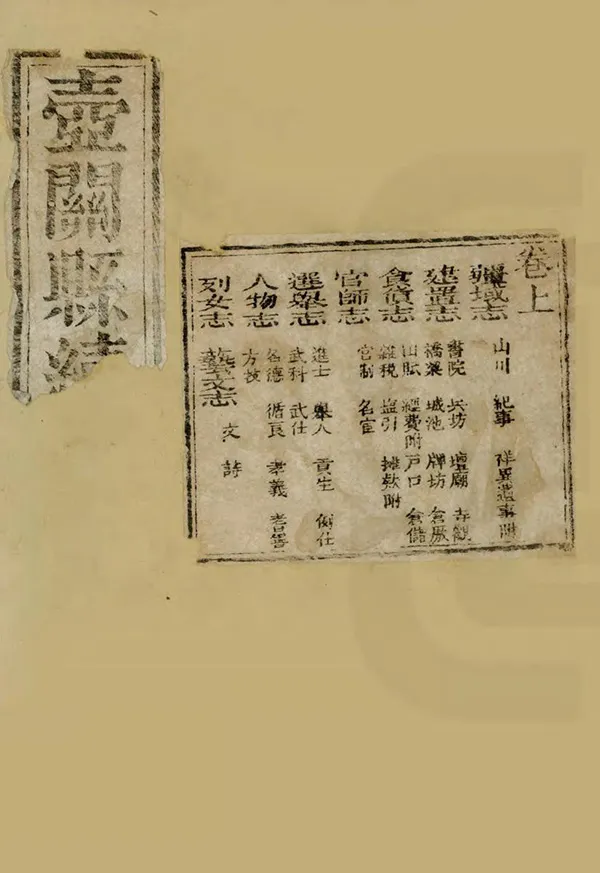 壺關縣續
卷上
疆域志 山川 紀事 祥異遺事附
建置志 書院 坊 壇廟 寺觀
橋梁 城池 牌坊 倉廒
食貨志 田賦 經費附 戶口 倉儲
雜稅 塩引 攤款附
官師志 官制 名宦
選舉志 進士 舉人 貢生 例仕
武科 武仕
人物志 名德 循良 孝義
方技
列女志 藝文志 文 詩